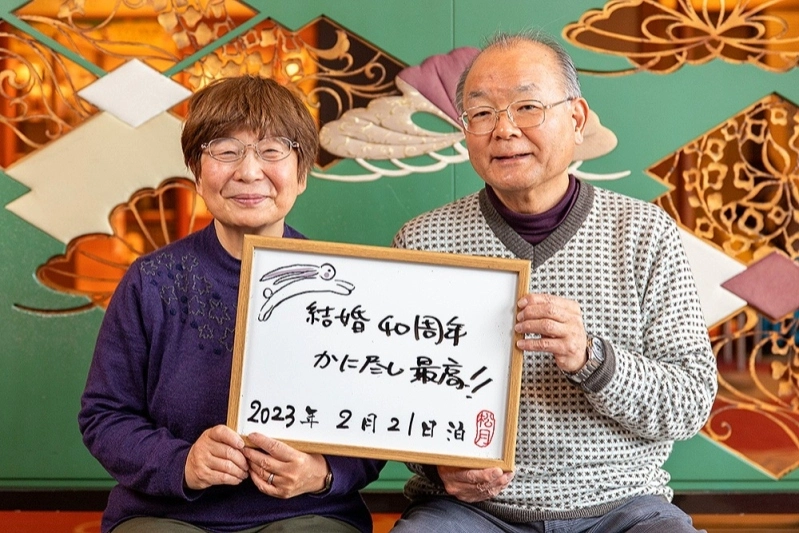 結婚40周年
かに尽し最高!!
2023年 2月21日泊
松月